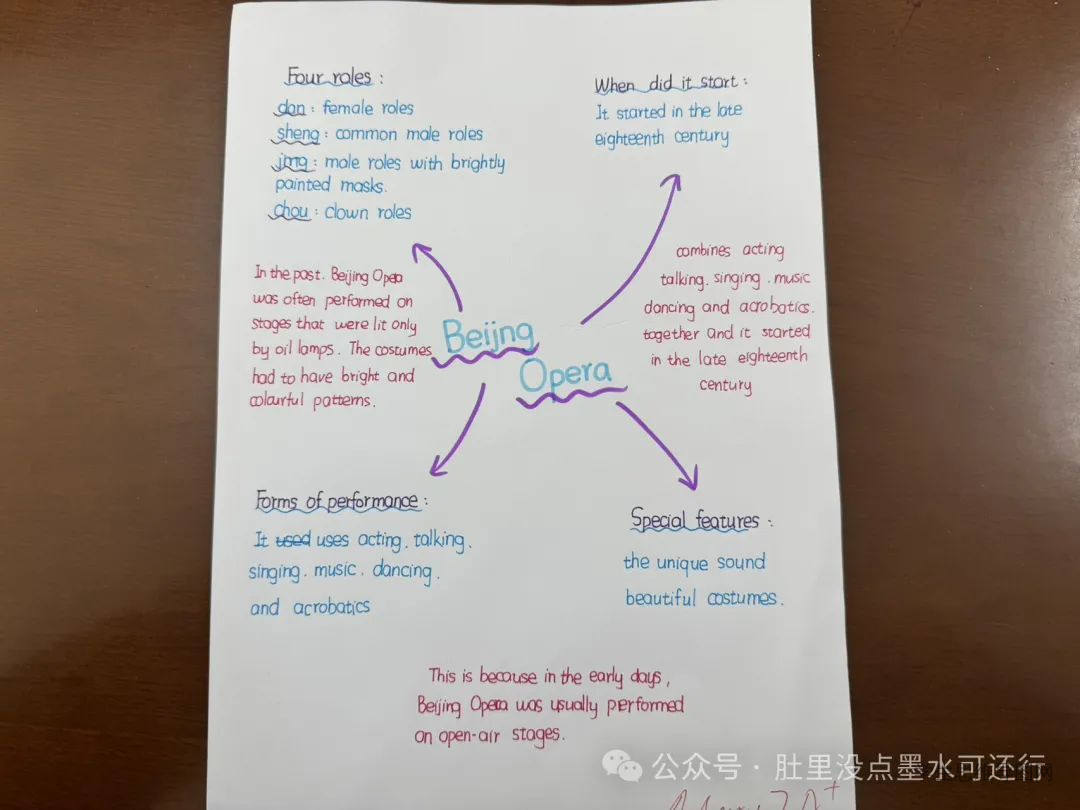 Four roles:
dan: female roles
sheng: common male roles
jing: male roles with brightly
painted masks.
chou: clown roles
When did it start:
It started in the late
eighteenth century
In the past. Beijing Opera
was often performed on
stages that were lit only
by oil lamps. The costumes
had to have bright and
colourful patterns.
Beijng
Opera
combines acting
talking. singing. music
dancing and acrobatics.
together and it started
in the late eighteenth
century
Forms of performance:
It used uses acting. talking.
singing. music. dancing.
and acrobatics
Special features:
the unique sound
beautiful costumes.
This is because in the early days,
Beijing Opera was usually performed
on open-air stages.
公众号·肚里没点墨水可还行